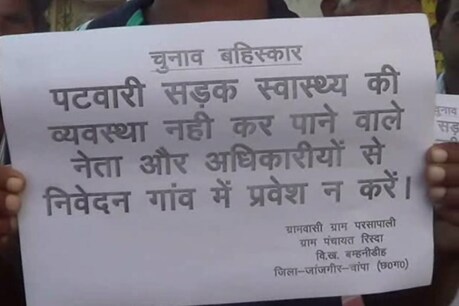 चुनाव बहिस्कार
पटवारी सड़क स्वास्थ्य की
व्यवस्था नही कर पाने वाले
नेता और अधिकारीयों से
निवेदन गांव में प्रवेश न करें।
ग्रामवासी ग्राम परसापाली
ग्राम पंचायत रिस्दा
वि.ख. बम्हनीडीह
जिला-जांजगीर-चांपा (छ०ग०)
चुनाव